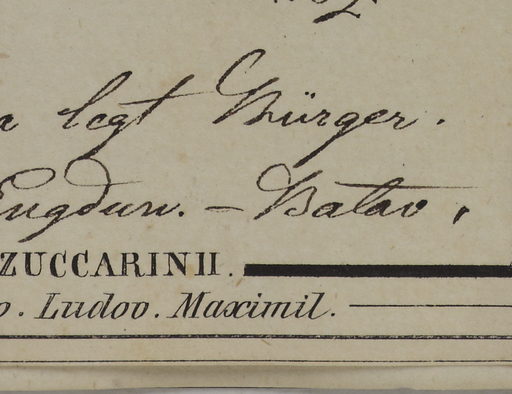 a legt Bürger.
Lugdun. - Batav.
ZUCCARINII.
o. Ludov. Maximil.